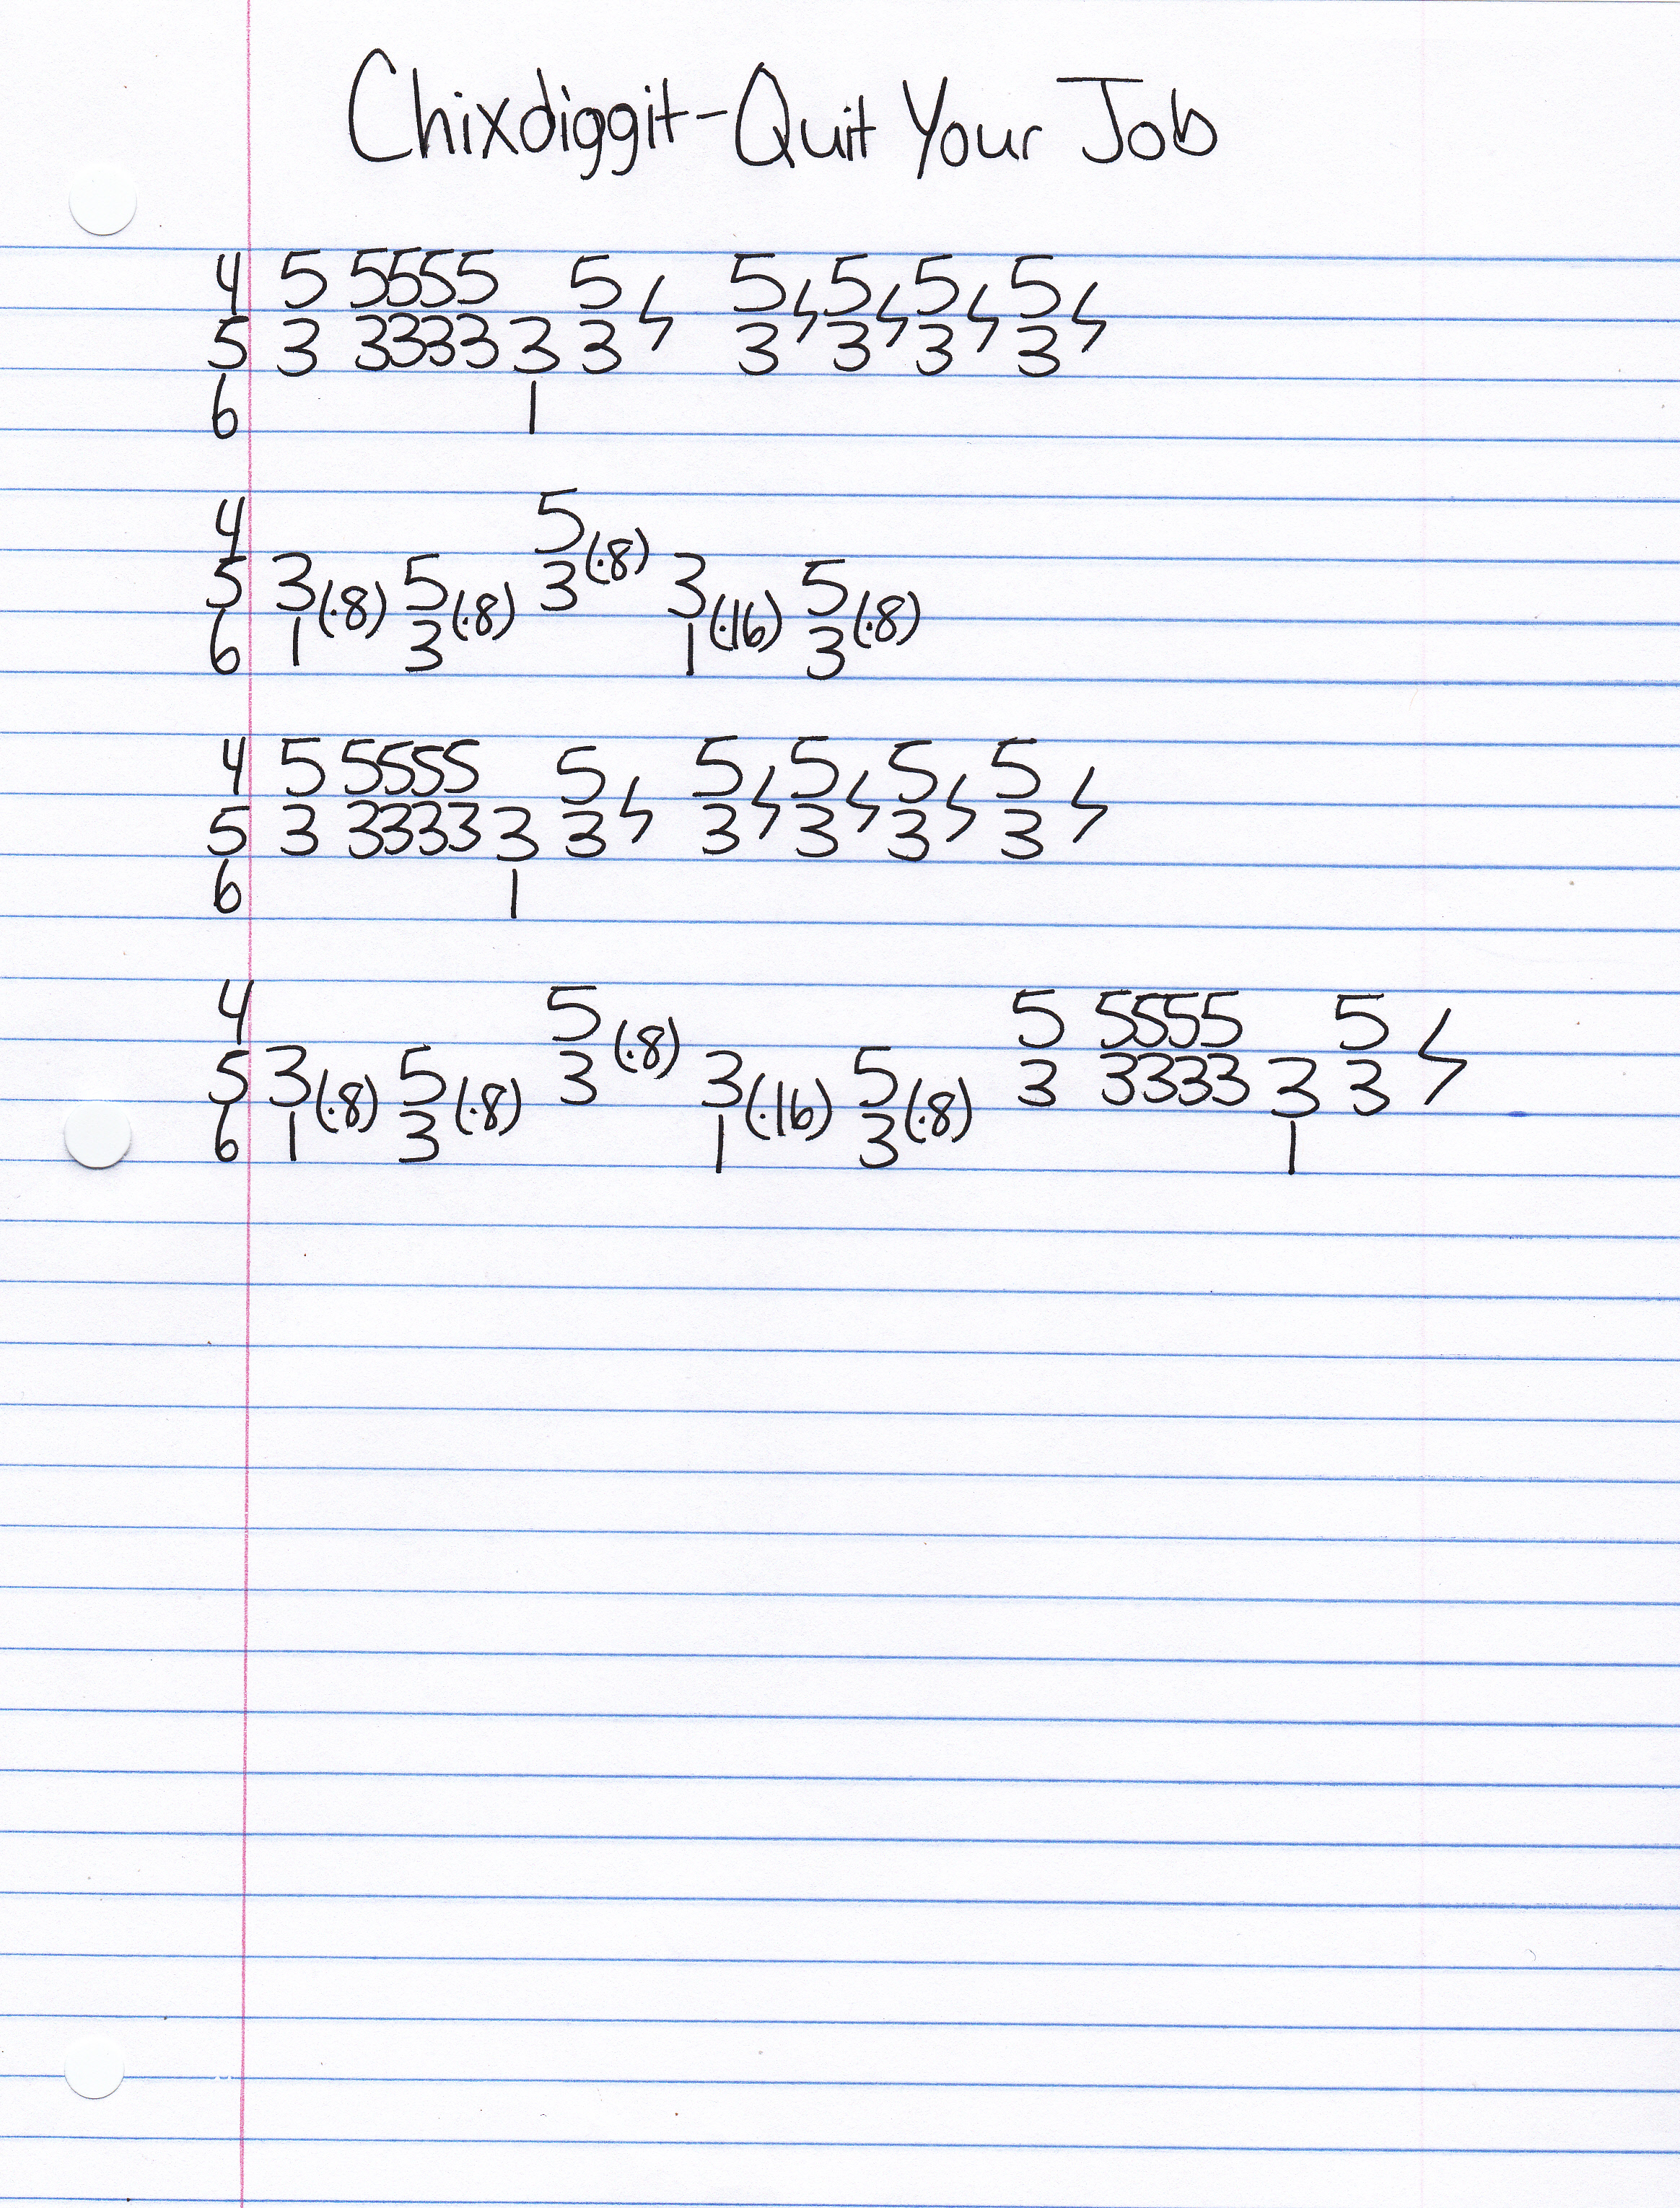 Chixdiggit-Quit Your Job
4 5 5555 5ϟ 5ϟ5ϟ5ϟ5ϟ
5 3 3333 3 3 3 3 3 3
6 1
4 5(·8)
5 3(·8) 5(·8) 3 3(·16) 5(·8)
6 1 3 1 3
4 5 5555 5ϟ 5ϟ5ϟ5ϟ5ϟ
5 3 3333 3 3 3 3 3 3
6 1
4 5(·8) 5 5555 5ϟ
5 3(·8) 5(·8) 3 3(·16) 5(·8) 3 3333 3 3
6 1 3 1 3 1